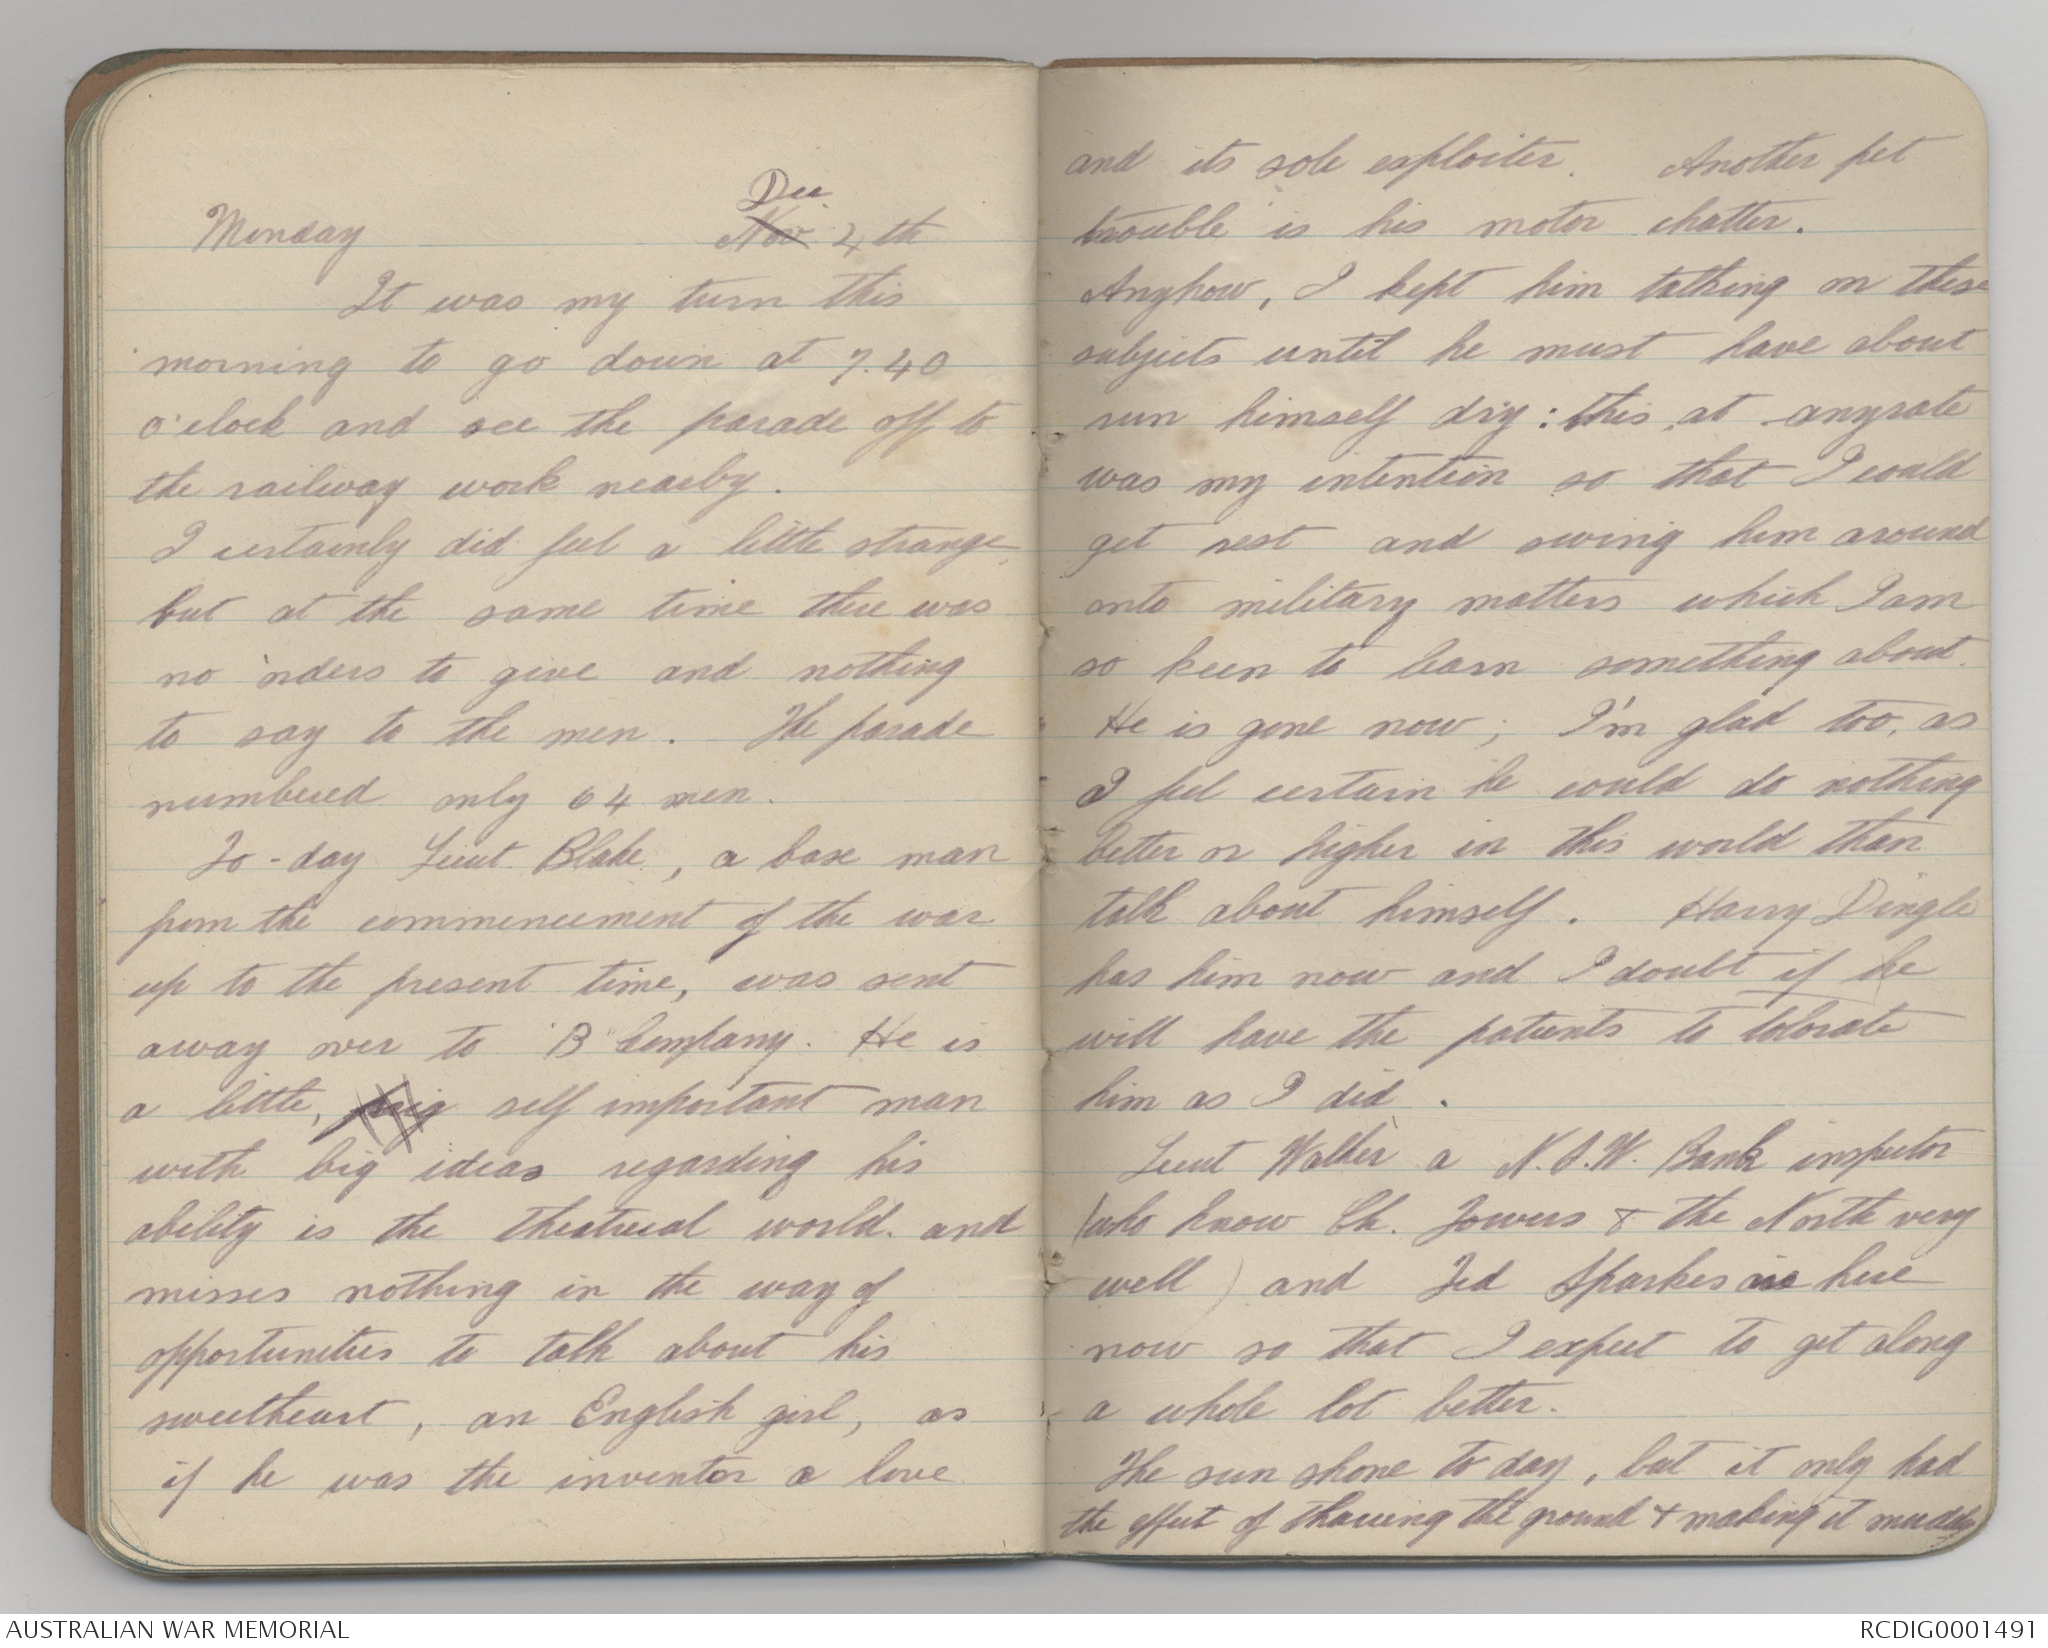 Dec
Monday Nov 24th
It was my turn this
morning to go down at 7.40
o'clock and see the parade off to
the railway work nearby.
I certainly did feel a little strange
but at the same time there was
no orders to give and nothing
to say to the men. The parade
numbered only 64 men.
To-day Lieut. Blake, a base man
from the commencement of the war
up to the present time, was sent
away over to "B" Company. He is
a little, self important man
with big ideas regarding his
ability is the theatrical world. and
misses nothing in the way of
opportunities to talk about his
sweetheart, an English girl, as
if he was the inventor a love
and its sole exploiter. Another pet
trouble is his motor chatter.
Anyhow, I kept him talking on these
subjects until he must have about
run himself dry: this, at anyrate
was my intention so that I could
get rest and swing him around
onto military matters which I am
so keen to learn something about.
He is gone now; I'm glad too, as
I feel certain he could do nothing
better or higher in this world than
talk about himself. Harry Dingle
has him now and I doubt if he
will have the patients to tolorate
him as I did.
Lieut Walker a N.S.W. Bank inspector
(who know Ch. Towers & the North very
well) and Ted Sparkes are here
now so that I expect to get along
a whole lot better.
The sun shone to day, but it only had
the effect of thawing the ground & making it muddy
AUSTRALIAN WAR MEMORIAL
RCDIG0001491